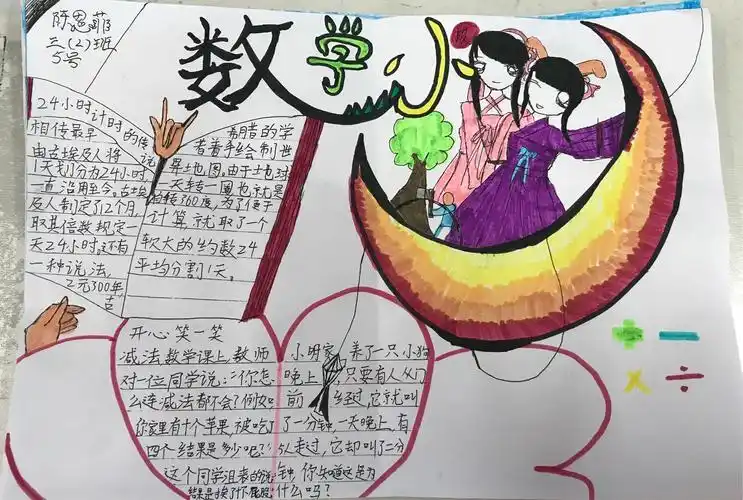 陈思菲
三(2)班
5号
数学小
24小时计时的传说
相传最早
由古埃及人将
1天划分为24小时
一直沿用至今。古埃
及人制定了12个月,
取其倍数规定一
天24小时。还有
一种说法。
2元300年,
古
希腊的学
者着手绘制世
界地图,由于地球
天转一圈也就是
360度,为了便于
计算就取了一个
较大的约数24
平均分割1天。
开心笑一笑
减法数学课上,教师
对一位同学说:“你怎
么连减法都不会?例如
你家里有十个苹果,被吃了
四个结果是多少呢?”
这个同学沮丧的说
结果是挨了十下屁股
小明家养了一只小狗
晚上,只要有人从门
前经过,它就叫
一分钟,一天晚上,有
5人走过,它却叫了二分
钟,你知道这是为
什么吗?
+ −
× ÷